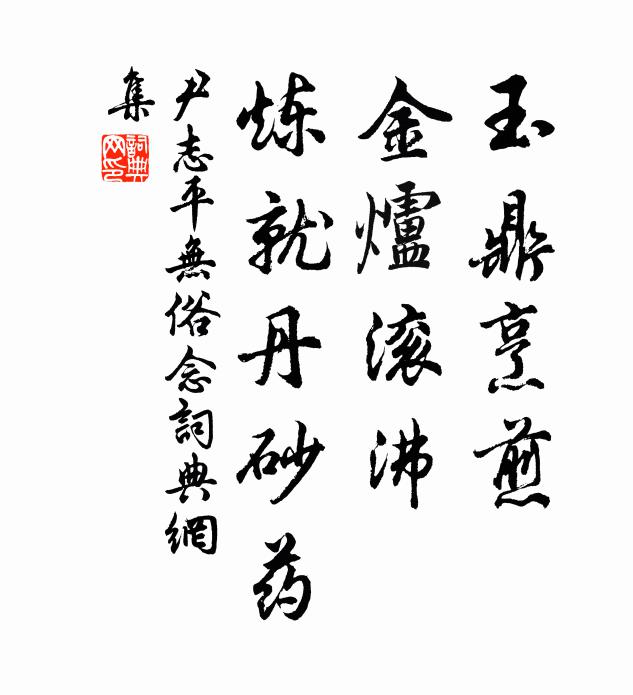 玉鼎烹煎
金爐滚沸
炼就丹砂药
尹志平無俗念詞典網
集
詞典
网印